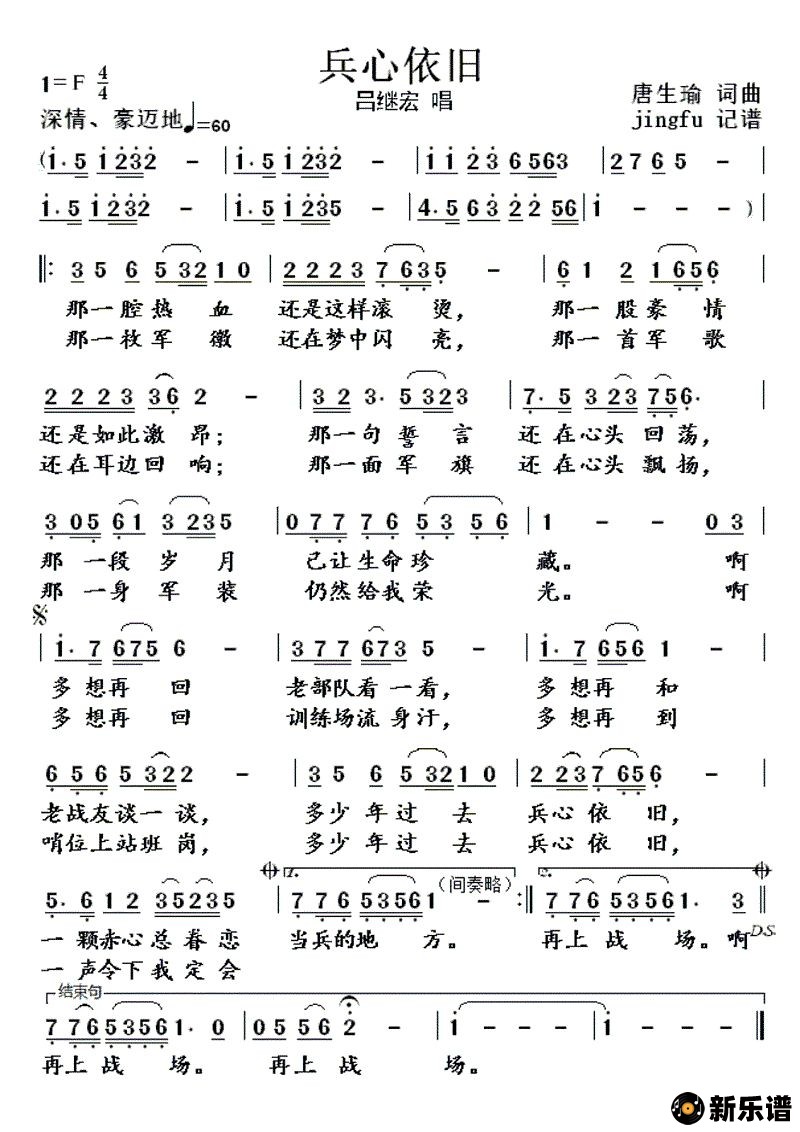 兵心依旧
1=F 4/4
吕继宏 唱
唐生瑜 词曲
深情、豪迈地♩=60
jingfu 记谱
(1·5 1232 - | 1·5 1232 - | 11 23 6563 | 2765 - |
1·5 1232 - | 1·5 1235 - | 4·5 63 22 56 | 1 - - )|
‖: 35 6 532 10 | 2223 7635 - | 61 2 1656 |
那一腔热 血 还是这样滚 烫, 那一股豪 情
那一牧军 徽 还在梦中闪 亮, 那一首军 歌
2223 36 2 - | 32 3· 5323 | 7·5 323 756· |
还是如此激 昂; 那一句誓 言 还 在心头 回荡,
还在耳边回 响; 那一面军 旗 还 在心头 飘扬,
3 05 61 3 235 | 077 76 53 56 | 1 - - 03 |
那 一段 岁 月 已让生命珍 藏。 啊
那 一身 军 装 仍然给我荣 光。 啊
| 1·7 675 6 - | 377 673 5 - | 1·7 656 1 - |
多 想再 回 老部队看 一看, 多 想再 和
多 想再 回 训练场流 身汗, 多 想再 到
656 5322 - | 35 6 532 10 | 223 7 656 - |
老战友谈一 谈, 多少 年过 去 兵心 依 旧,
哨位上站班 岗, 多少 年过 去 兵心 依 旧,
1. (间奏略) 2.
5·6 12 35235 | 776 5356 1 - :‖ 776 5356 1· 3 ‖
一 颗赤心 总 眷恋 当兵的地 方。 再上 战 场。啊 D.S.
一 声令下 我 定 会
结束句
776 5356 1· 0 | 055 56 2 - | 1 - - - | 1 - - - ‖
再上 战 场。 再上 战 场。
新乐谱